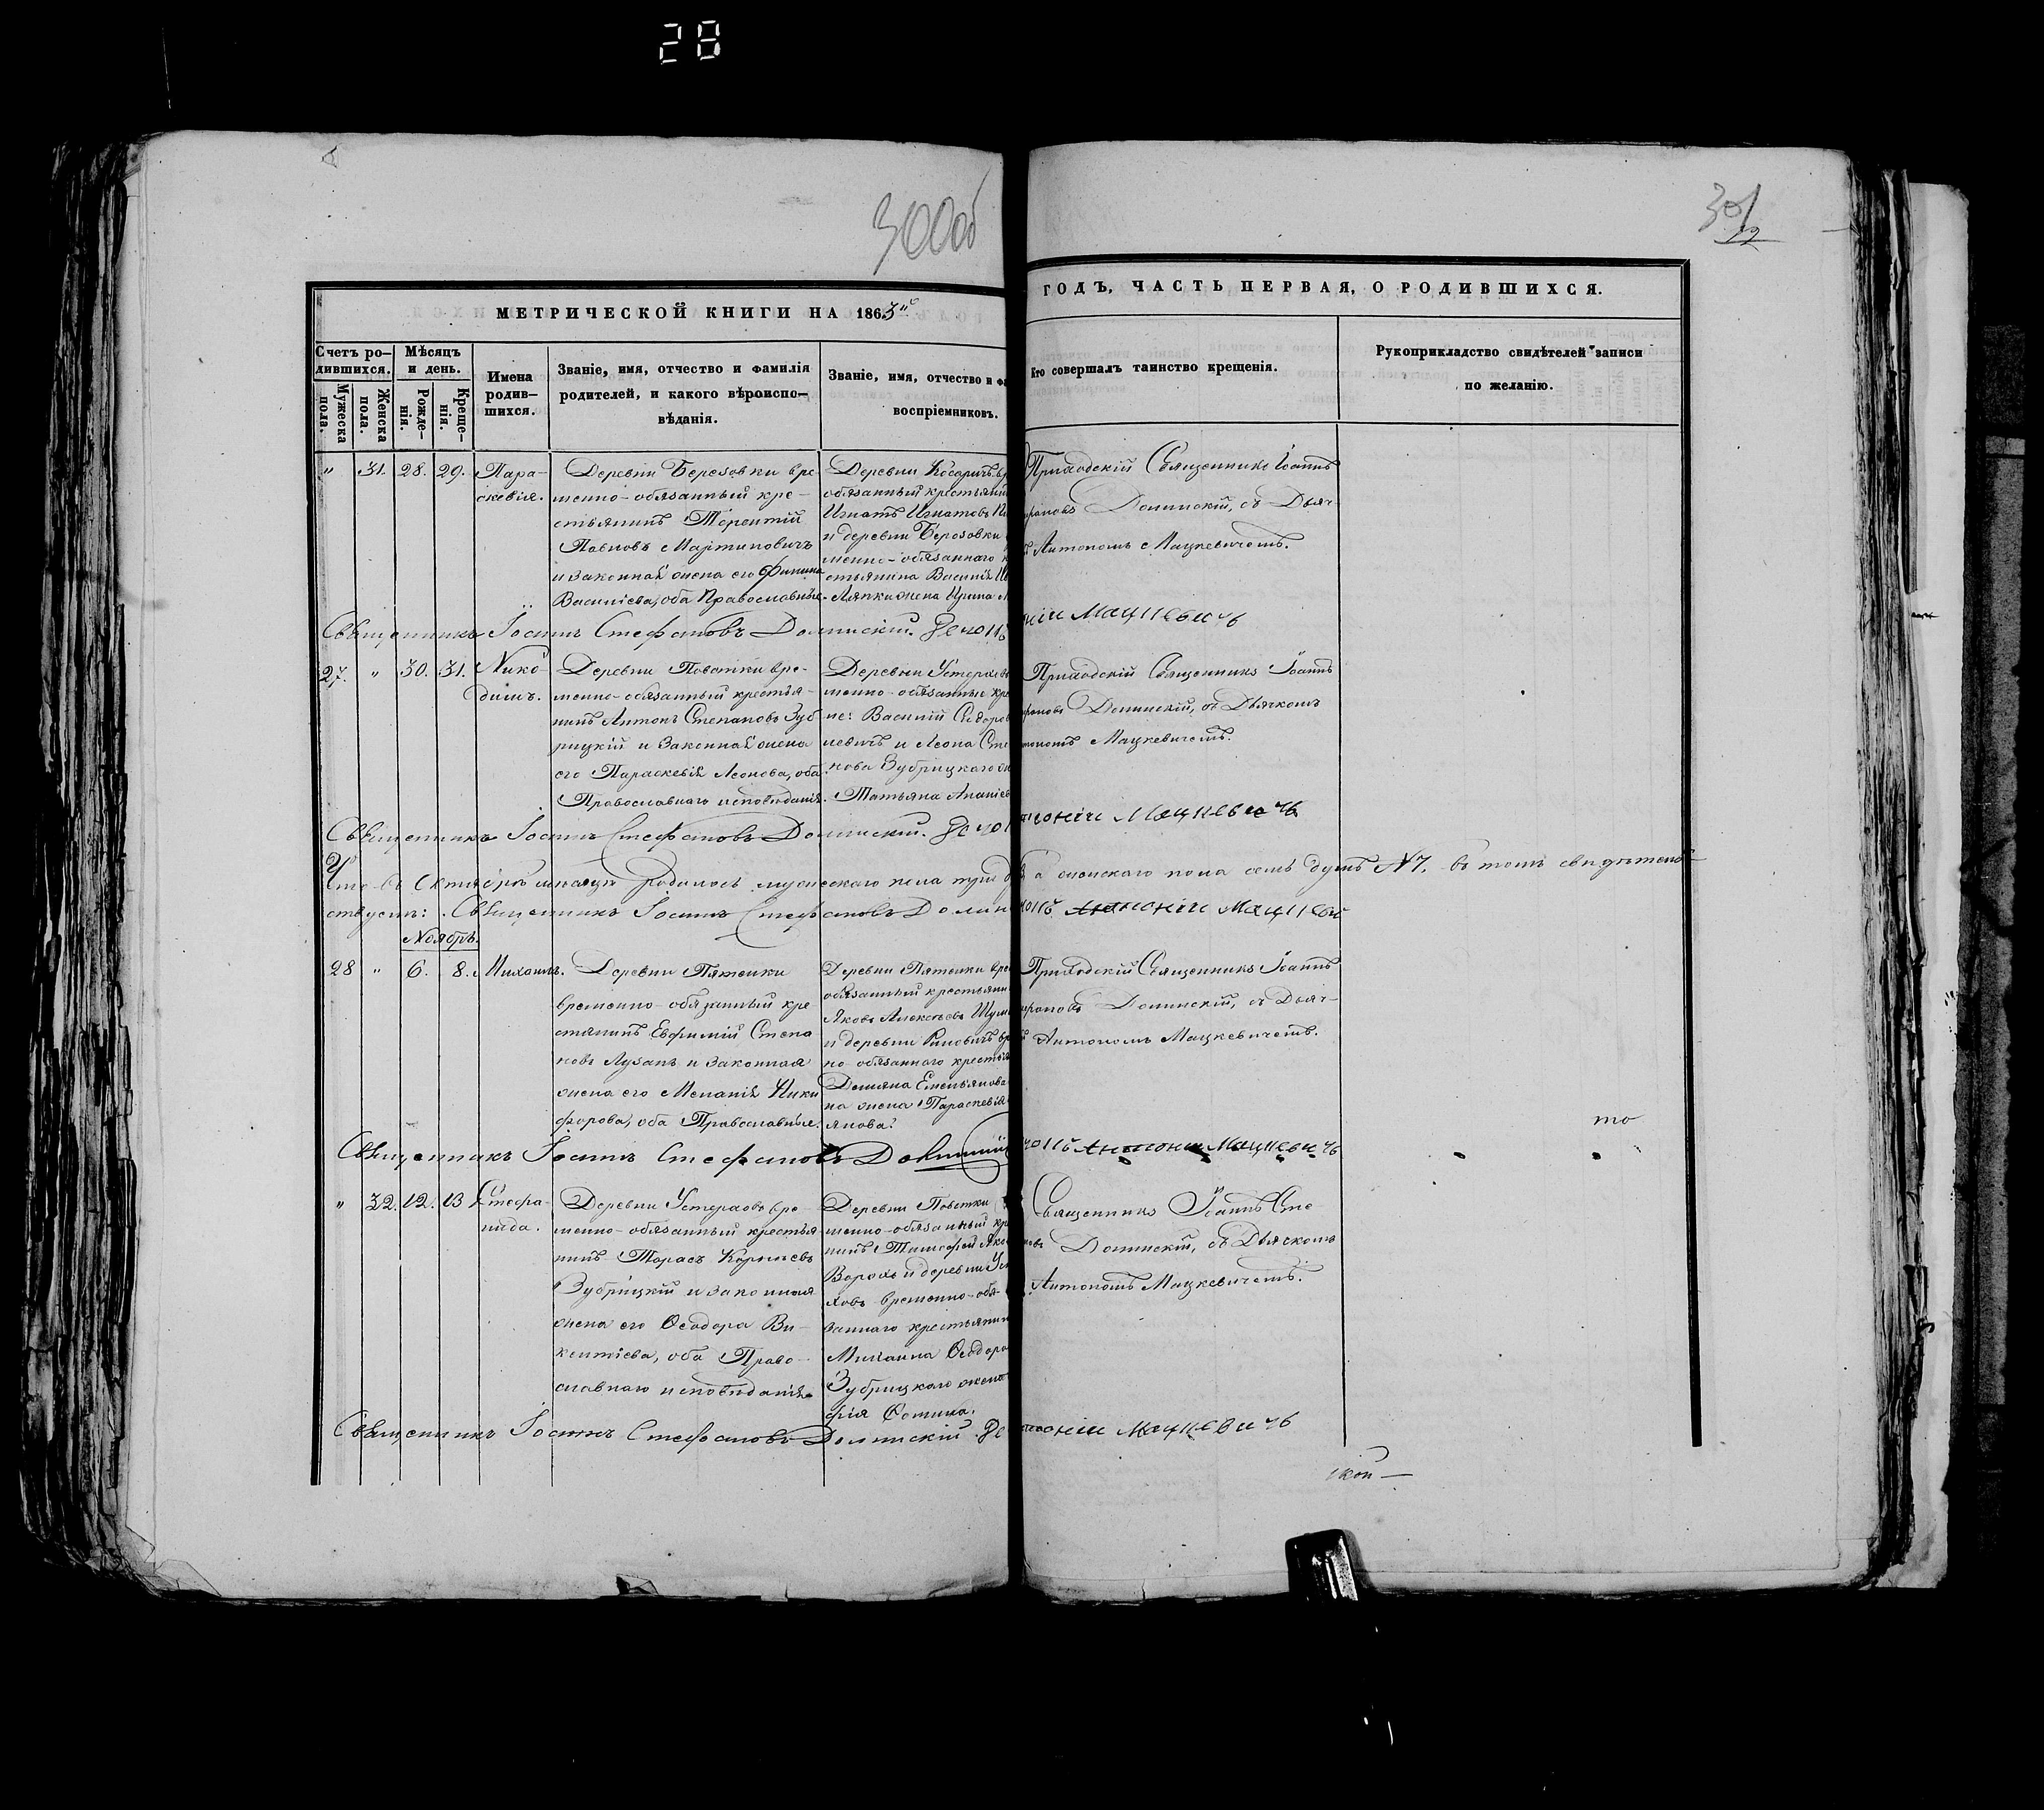 28
300об
301
22
МЕТРИЧЕСКОЙ КНИГИ НА 1863й
ГОДЪ, ЧАСТЬ ПЕРВАЯ, О РОДИВШИХСЯ.
Счетъ ро-
дившихся.
Мужеска
пола.
Женска
пола.
Мѣсяцъ
и день.
Рожде-
нія.
Креще-
нія.
Имена
родив-
шихся.
Званіе, имя, отчество и фамилія
родителей, и какого вѣроиспо-
вѣданія.
Званіе, имя, отчество и фа
воспріемниковъ.
Кто совершалъ таинство крещенія.
Рукоприкладство свидѣтелей записи
по желанію.
" 31. 28. 29.
Пара-
скевія.
Деревни Березовки вре-
менно-обязанный кре-
стьянинъ Терентій
Павловъ Мартиновичъ
и законная жена его
Василіева, оба Православные.
обязанный крестьянин
Игнатъ Игнатовъ
и деревни Березовки
менно-обязаннаго
стьянина Василія
жена Ирина
Приходскій Священникъ Іоаннъ
Долинскій, съ Дьяч-
Антономъ Мацкевичемъ.
Священникъ Іоаннъ Стефановъ Долинскій.
Мацкевичъ
27. " 30. 31.
Нико-
димъ.
Деревни Повстки вре-
менно-обязанный крестья-
нинъ Антонъ Степановъ Зуб-
рицкій и законная жена
его Параскевія Леонова, оба
Православнаго исповѣданія.
Деревни
менно-обязанные кре
не: Василій Сидоров
невичъ и Леона Сте
нова Зубрицкаго
Татьяна Ананіев
Приходскій Священникъ Іоаннъ
фановъ Долинскій, съ Дьячкомъ
тономъ Мацкевичемъ.
Священникъ Іоаннъ Стефановъ Долинскій.
тоній Мацкевичъ
Что въ Октябрѣ мѣсяцѣ родилось мужескаго пола три
а женскаго пола семь душъ №7. въ томъ свидѣтель-
ствуемъ: Священникъ Іоаннъ Стефановъ Долин
Антоній Мацкевич
Ноябрь.
28 " 6. 8.
Михаилъ.
Деревни Пятенки
временно-обязанный кре
стянинъ Евфимій Степа
новъ Лузанъ и законная
жена его Меланія Ники
форова, оба Православные.
Деревни Пятенки вре
обязанный крестьяни
Яковъ Алексѣевъ
и деревни
но обязаннаго крестья
Демяна Емельянова
на жена Параскевія
янова.
Приходскій Священникъ Іоаннъ
фановъ Долинскій, съ Дьяч-
Антономъ Мацкевичемъ.
то
Священникъ Іоаннъ Стефановъ Долинскій
Антоній Мацкевичъ
" 32. 12. 13
Стефа-
нида.
Деревни Устерховъ вре-
менно-обязанный крестья
нинъ Тарасъ Корнѣевъ
Зубрицкій и законная
жена его Ѳеодора Ви-
кентіева, оба Право-
славнаго исповѣданія.
Деревни Повстки
менно-обязаный кр
нинъ Тимофей
и деревни Ус
ховъ временно-обя-
заннаго крестьянин
Михаила Ѳеодоро
Зубрицкаго жена
фія Ѳомина.
Священникъ Іоаннъ Сте-
новъ Долинскій, съ Дьячкомъ
Антономъ Мацкевичемъ.
Священникъ Іоаннъ Стефановъ Долинскій
тоній Мацкевичъ
ской